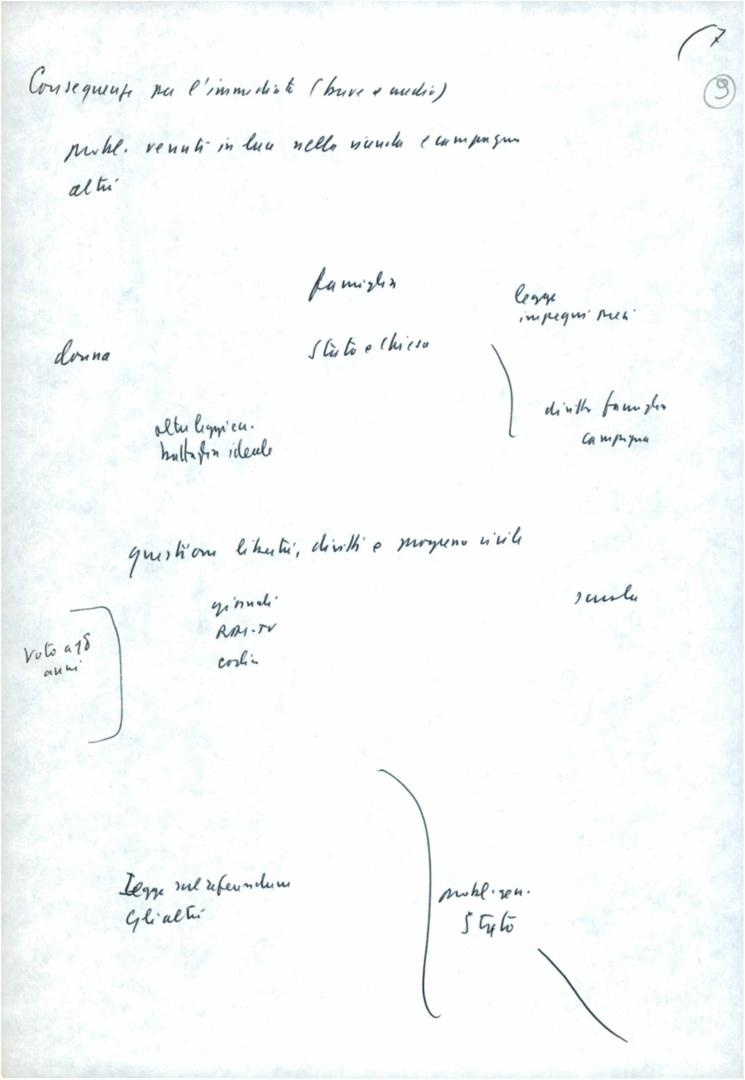 7
9
Conseguenze per l'immediato (breve e medio)
probl. venuti in luce nella vicenda e campagna
altri
famiglia
legge
impegni presi
donna
Stato e Chiesa
diritto famiglia
campagna
altre leggi e
battaglia ideale
questione libertà, diritti e progresso civile
giornali
RAI-TV
codici
scuola
Voto a 18
anni
Legge sul referendum
Gli altri
probl. gen.
Stato